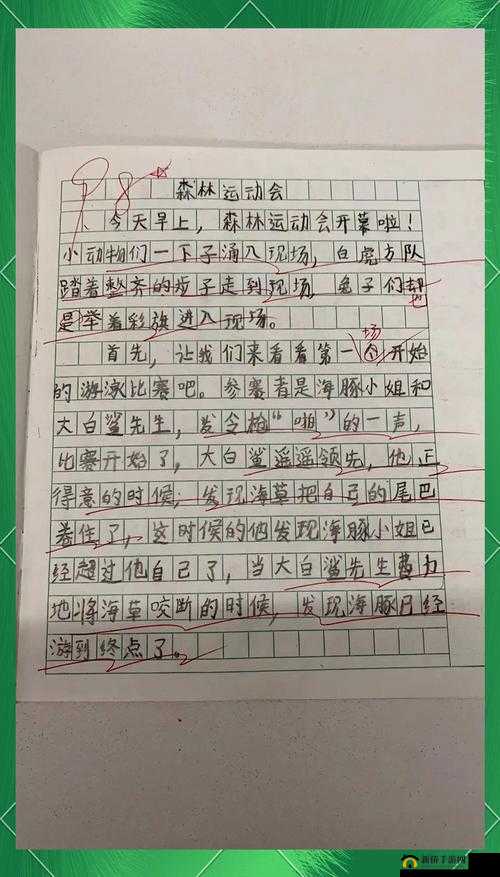 98
森林运动会
今天早上，森林运动会开幕啦！
小动物们一下子涌入现场，白虎方队
踏着整齐的步子走到现场 兔子们都
也
是举着彩旗进入现场。
场
首先，让我们来看看第一个开始
的游泳比赛吧。参赛者是海豚小姐和
大白鲨先生，发令枪“啪”的一声，
比赛开始了，大白鲨遥遥领先，他正
得意的时候，发现海草把自己的尾巴
卷住了，这时候的他发现海豚小姐已
经超过他自己了，当大白鲨先生费力
地将海草咬断的时候，发现海豚已经
游到终点了。
新侨手游网